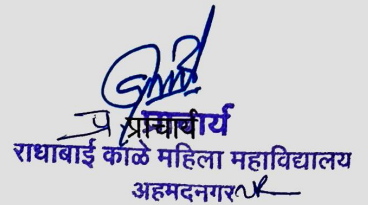 प्र प्राचार्य
राधाबाई काळे महिला महाविद्यालय
अहमदनगर